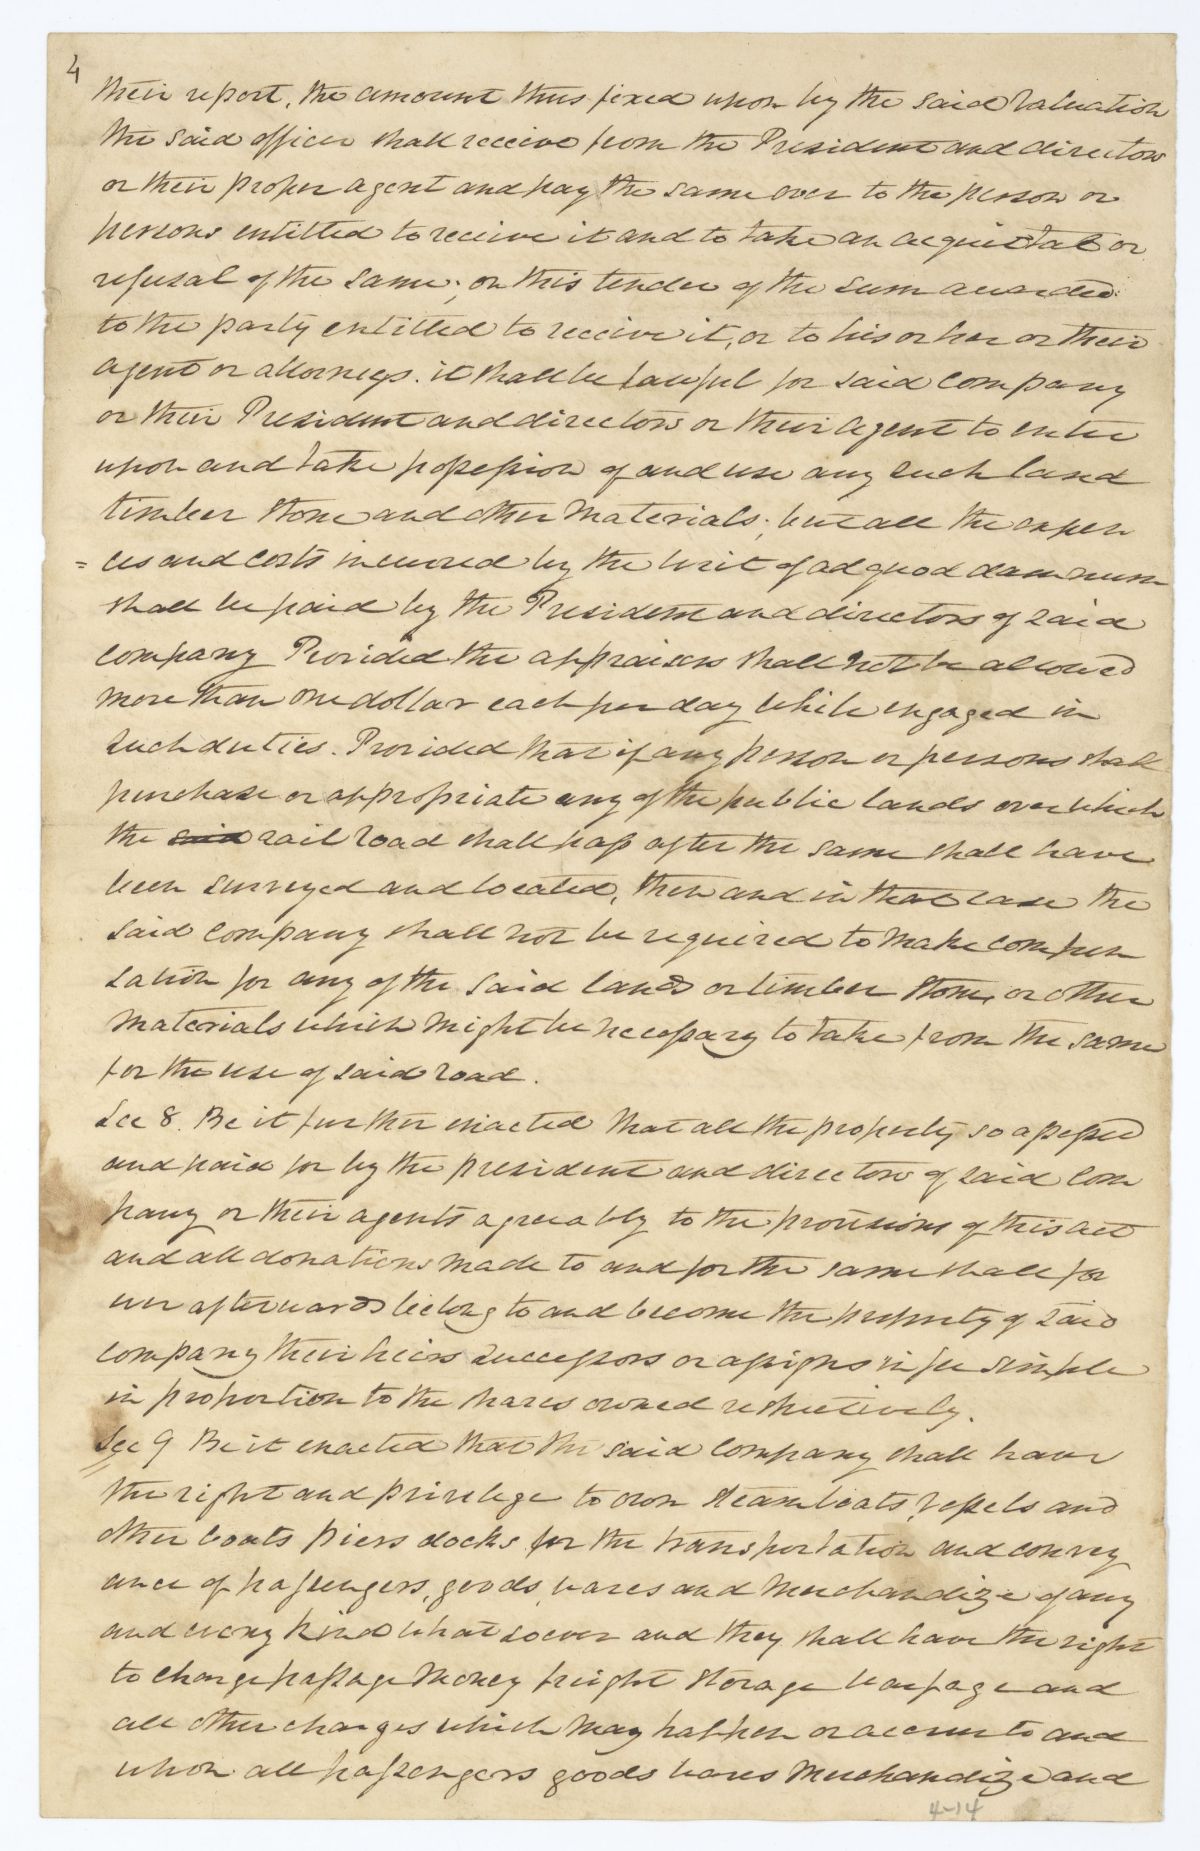 4
their report, the amount thus fixed upon by the said valuation
the said officer shall receive from the President and directors
or their proper agent and pay the same over to the person or
persons entitled to receive it and to take an acquittal or
refusal of the same; on this tender of the sum awarded
to the party entitled to receive it, or to his or her or their
agent or attorneys. it shall be lawful for said company
or their President and directors or their agent to enter
upon and take possession of and use any such land
timber stone and other materials; but all the expen
= ces and costs incurred by the writ of ad quod damnum
shall be paid by the President and directors of said
company Provided the appraisers shall not be allowed
more than one dollar each per day while engaged in
such duties. Provided that if any person or persons shall
purchase or appropriate any of the public lands over which
the said rail road shall pass after the same shall have
been surveyed and located, then and in that case the
said company shall not be required to make compen
sation for any of the said lands or timber stone, or other
materials which might be necessary to take from the same
for the use of said road.
Sec 8. Be it further enacted that all the property so assessed
and paid for by the president and directors of said com
pany or their agents agreeably to the provisions of this act
and all donations made to and for the same shall for
ever afterwards belong to and become the property of said
company their heirs successors or assigns in fee simple
in proportion to the shares owned respectively.
Sec 9 Be it enacted that the said company shall have
the right and privilege to own steamboats, vessels and
other boats piers docks for the transportation and convey
ance of passengers, goods, wares and merchandize of any
and every kind whatsoever and they shall have the right
to charge passage money freight storage warfage and
all other charges which may happen or accrue to and
upon all passengers goods wares merchandize and
4-14